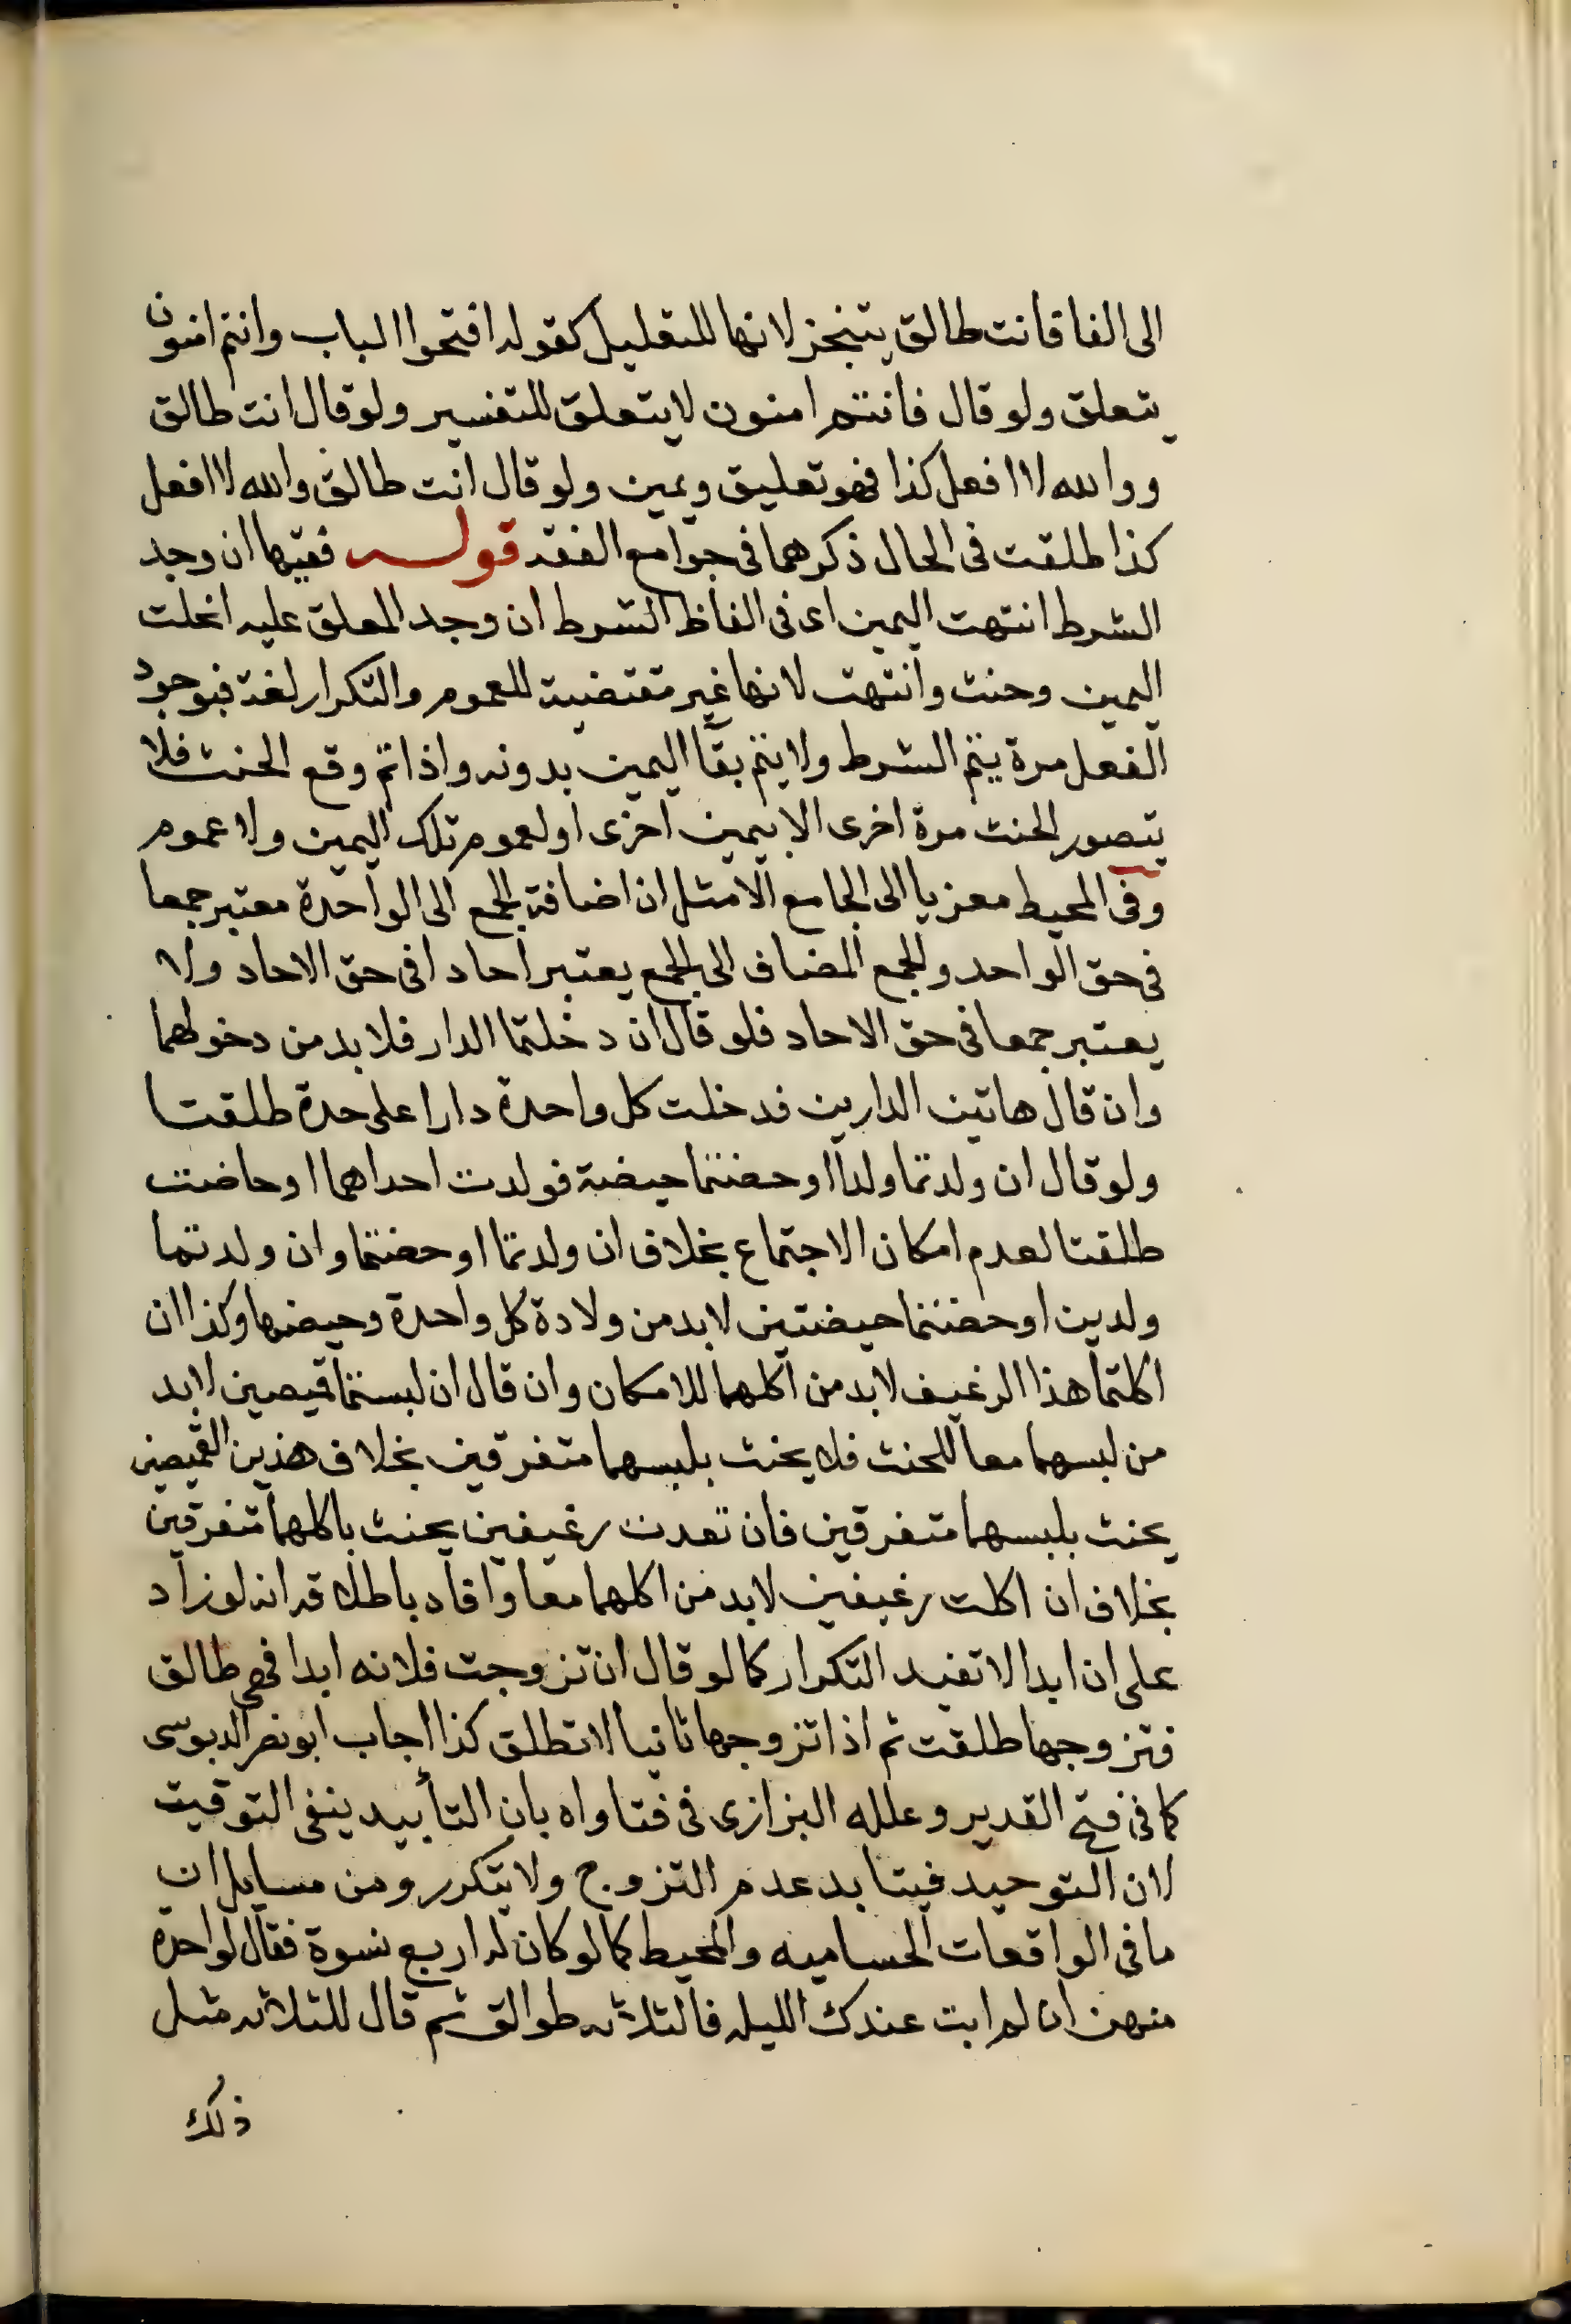 الى الفا فانت طالق يتنجز لانها للتعليل كقوله افتحوا الباب وانتم امنون
يتعلق ولو قال فانتم امنون لا يتعلق للتفسير ولو قال انت طالق
ووالله لا افعل كذا فهو تعليق ويمين ولو قال انت طالق والله لا افعل
كذا طلقت فى الحال ذكرهما فى جوامع الفقه قوله ففيها ان وجد
الشرط انتهت اليمين اى فى الفاظ الشرط ان وجد المعلق عليه انحلت
اليمين وحنث وانتهت لانها غير مقتضية للعموم والتكرار لغة فبوجود
الفعل مرة يتم الشرط ولا يتم بقا اليمين بدونه واذا تم وقع الحنث فلا
يتصور الحنث مرة اخرى الا بيمين اخرى او لعموم تلك اليمين ولا عموم
وفى المحيط معزيا الى الجامع الامثل ان اضافة الجمع الى الواحدة معتبر جمعا
فى حق الواحد والجمع المضاف الى الجمع يعتبر احادا فى حق الاحاد ولا
يعتبر جمعا فى حق الاحاد فلو قال ان دخلتما الدار فلا بد من دخولهما
وان قال هاتين الدارين فدخلت كل واحدة دارا على حدة طلقتا
ولو قال ان ولدتما ولدا او حضتما حيضة فولدت احداهما او حاضت
طلقتا لعدم امكان الاجتماع بخلاف ان ولدتما او حضتما وان ولدتما
ولدين او حضتما حيضتين لا بد من ولادة كل واحدة وحيضها وكذا ان
اكلتما هذا الرغيف لا بد من اكلهما للامكان وان قال ان لبستما قميصين لا بد
من لبسهما معا للحنث فلا يحنث بلبسهما متفرقين بخلاف هذين القميصين
يحنث بلبسهما متفرقين فان تعدت رغيفين يحنث باكلهما متفرقين
بخلاف ان اكلت رغيفين لا بد من اكلهما معا وافاد باطلاقه انه لو زاد
على ان ابدا لا تفيد التكرار كما لو قال ان تزوجت فلانه ابدا فهى طالق
فتزوجها طلقت ثم اذا تزوجها ثانيا لا تطلق كذا اجاب ابو نصر الدبوسى
كما فى فتح القدير وعلله البزازى فى فتاواه بان التأبيد ينفى التوقيت
لان التوحيد فيتابد عدم التزوج ولا يتكرر ومن مسايل ان
ما فى الواقعات الحساميه والمحيط كما لو كان له اربع نسوة فقال لواحدة
منهن ان لم ابت عندك الليله فالثلاثه طوالق ثم قال للثلاثه مثل
ذلك